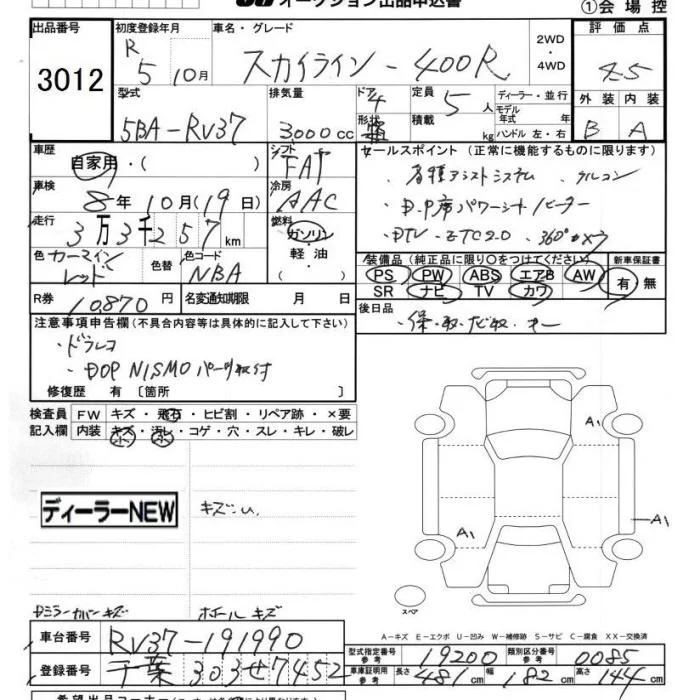 オークション出品申込書
①会場控
出品番号 3012
初度登録年月 R 5 10月
車名・グレード スカイライン-400R
2WD・4WD
評価点 4.5
外装 内装
B A
型式 5BA-RV37
排気量 3000cc
ドア 4
形状
定員 5人
積載 kg
ディーラー・並行
モデル年式 年
ハンドル 左・右
車歴 自家用・( )
シフト FAT
車検 8年10月(19日)
冷房 AAC
走行 3万3千257km
燃料 ガソリン・軽油・( )
色 カーマインレッド
色替
色コード NBA
R券 10,870円
名変通知期限 月 日
セールスポイント(正常に機能するものに限ります)
・各種アシストシステム ・アルコン
・D.P席パワーシート/ヒーター
・DTV・ETC2.0・360°カメラ
装備品(純正品に限り○をつけてください)
PS PW ABS エアB AW
SR ナビ TV カワ
新車保証書 有・無
後日品 ・保・取・ナビ取・キー
注意事項申告欄(不具合内容等は具体的に記入して下さい)
・ドラレコ
・DOP NISMOパーツ取付
修復歴 有 [箇所 ]
検査員記入欄
FW キズ・飛石・ヒビ割・リペア跡・×要
内装 キズ・汚レ・コゲ・穴・スレ・キレ・破レ
小 小
ディーラーNEW
キズ小。
A1
A1
A1
Dミラーカバーキズ ホイールキズ
スペア
A-キズ E-エクボ U-凹み W-補修跡 S-サビ C-腐食 XX-交換済
車台番号 RV37-191990
登録番号 千葉 303せ7452
型式指定番号参考 19200
類別区分番号参考 0085
車庫証明用参考 長さ 481cm 幅 182cm 高さ 144cm
希望出品コーナー